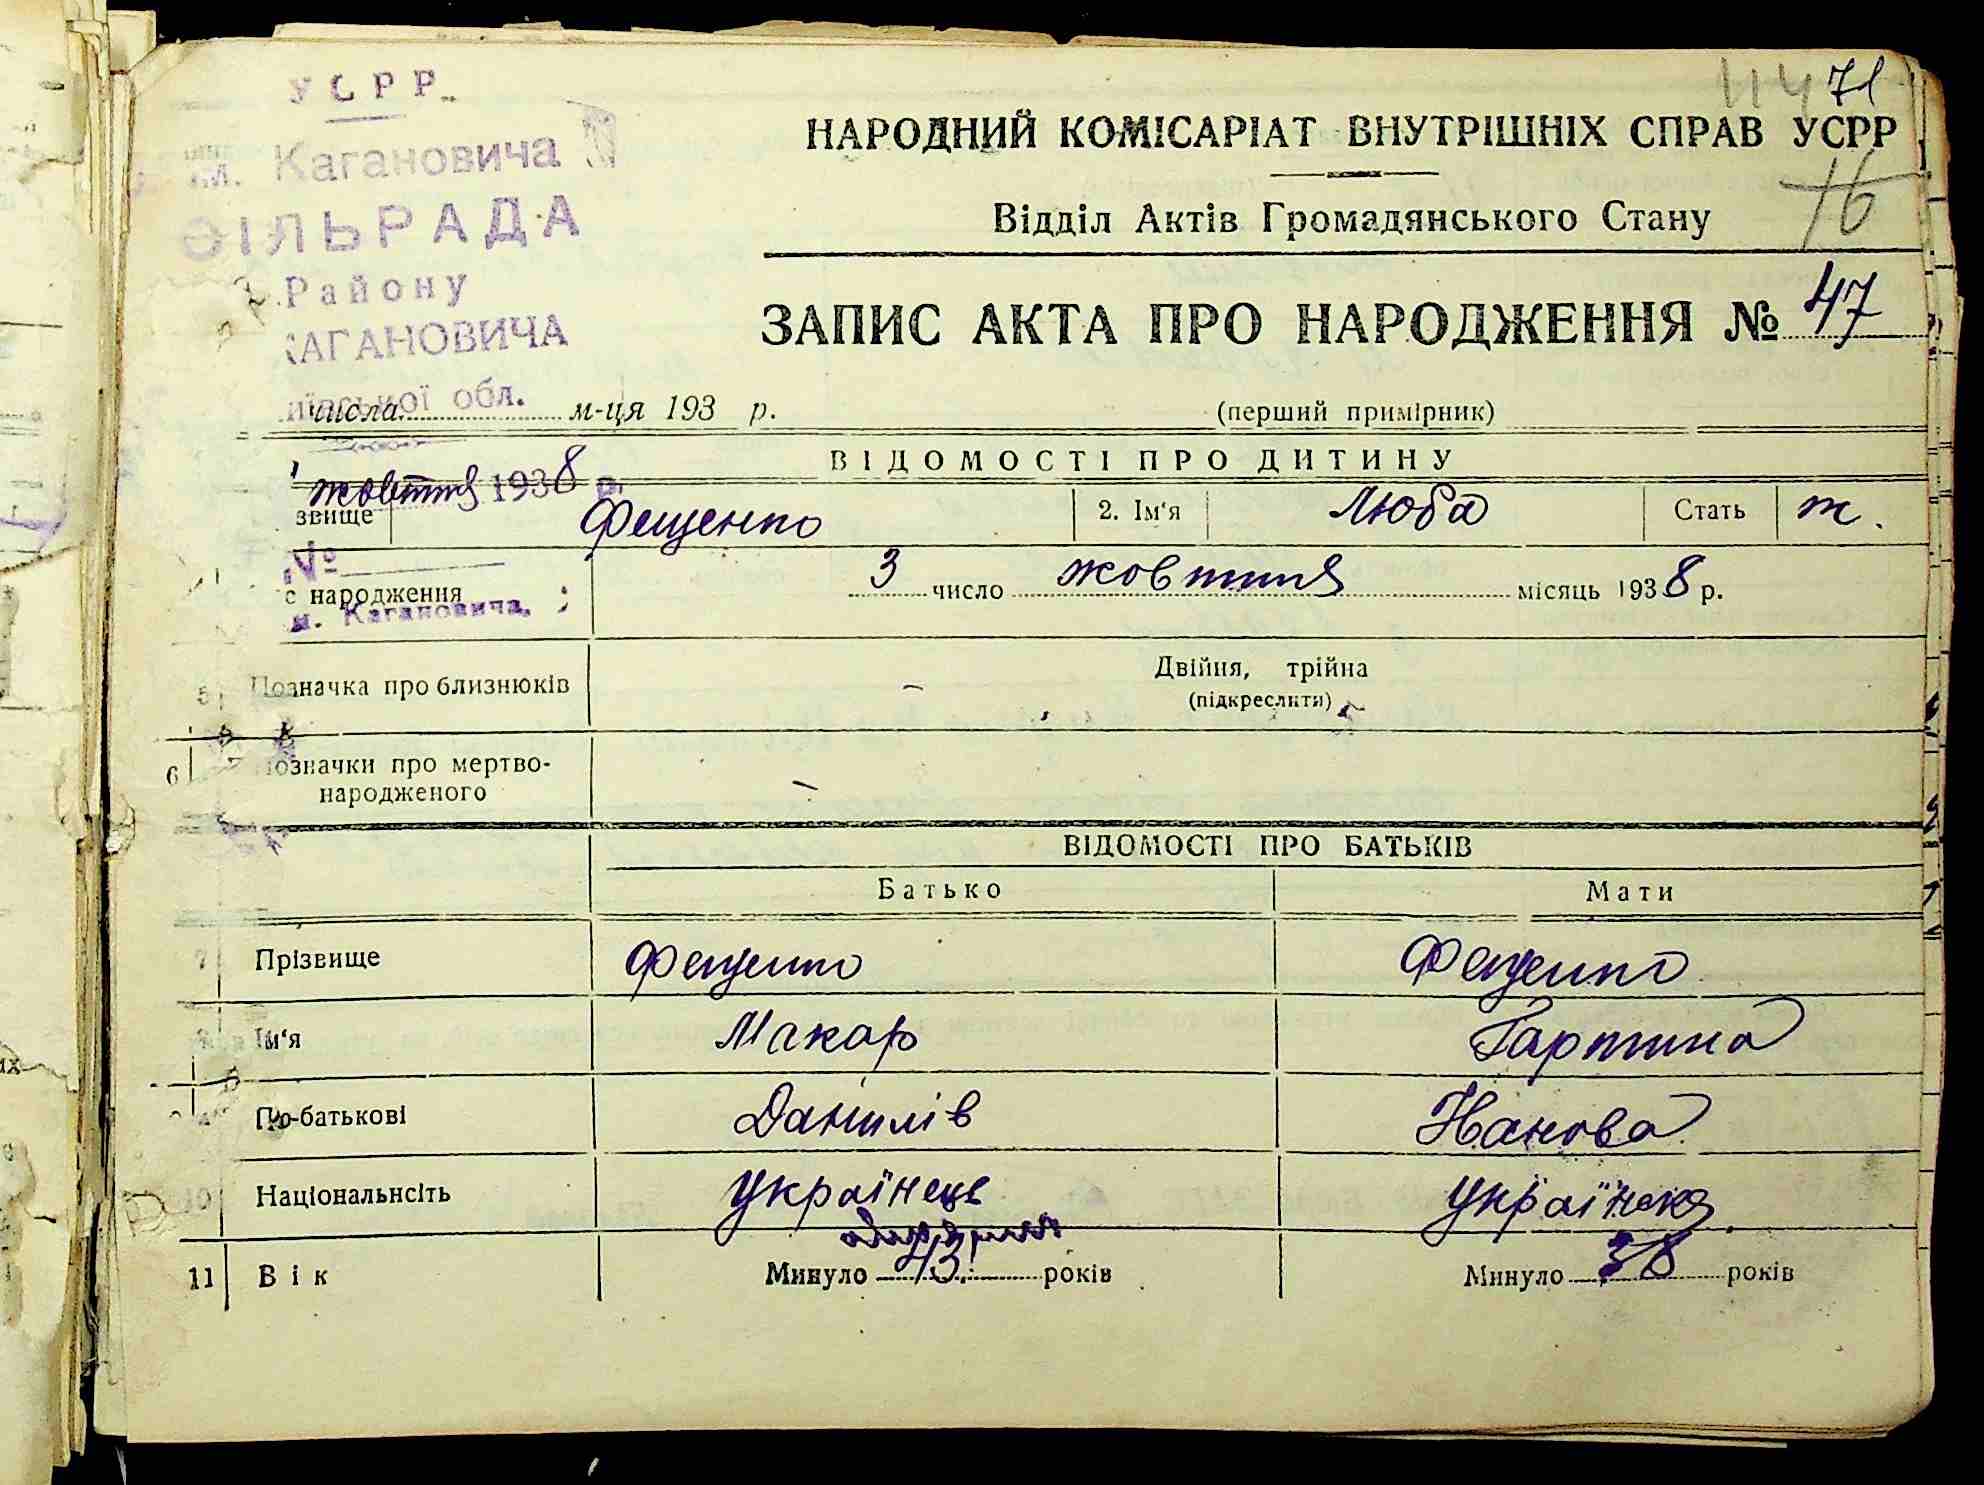 УСРР
ім. Кагановича
СІЛЬРАДА
Району
КАГАНОВИЧА
Київської обл.
жовтня 1938 р.
№
м. Кагановича,
71
НАРОДНИЙ КОМІСАРІАТ ВНУТРІШНІХ СПРАВ УСРР
16
Відділ Актів Громадянського Стану
ЗАПИС АКТА ПРО НАРОДЖЕННЯ № 47
числа м-ця 193 р.
(перший примірник)
ВІДОМОСТІ ПРО ДИТИНУ
звище Фещенко 2. Ім'я Люба Стать ж.
с народження 3 число жовтня місяць 1938 р.
5 Позначка про близнюків Двійня, трійна
(підкреслити)
6 Позначки про мертво-
народженого
ВІДОМОСТІ ПРО БАТЬКІВ
Батько Мати
7 Прізвище Фещенко Фещенко
8 Ім'я Макар Гарпина
По-батькові Данилів Іванова
10 Національнсіть Українець Українка
11 Вік Минуло 43 років Минуло 38 років